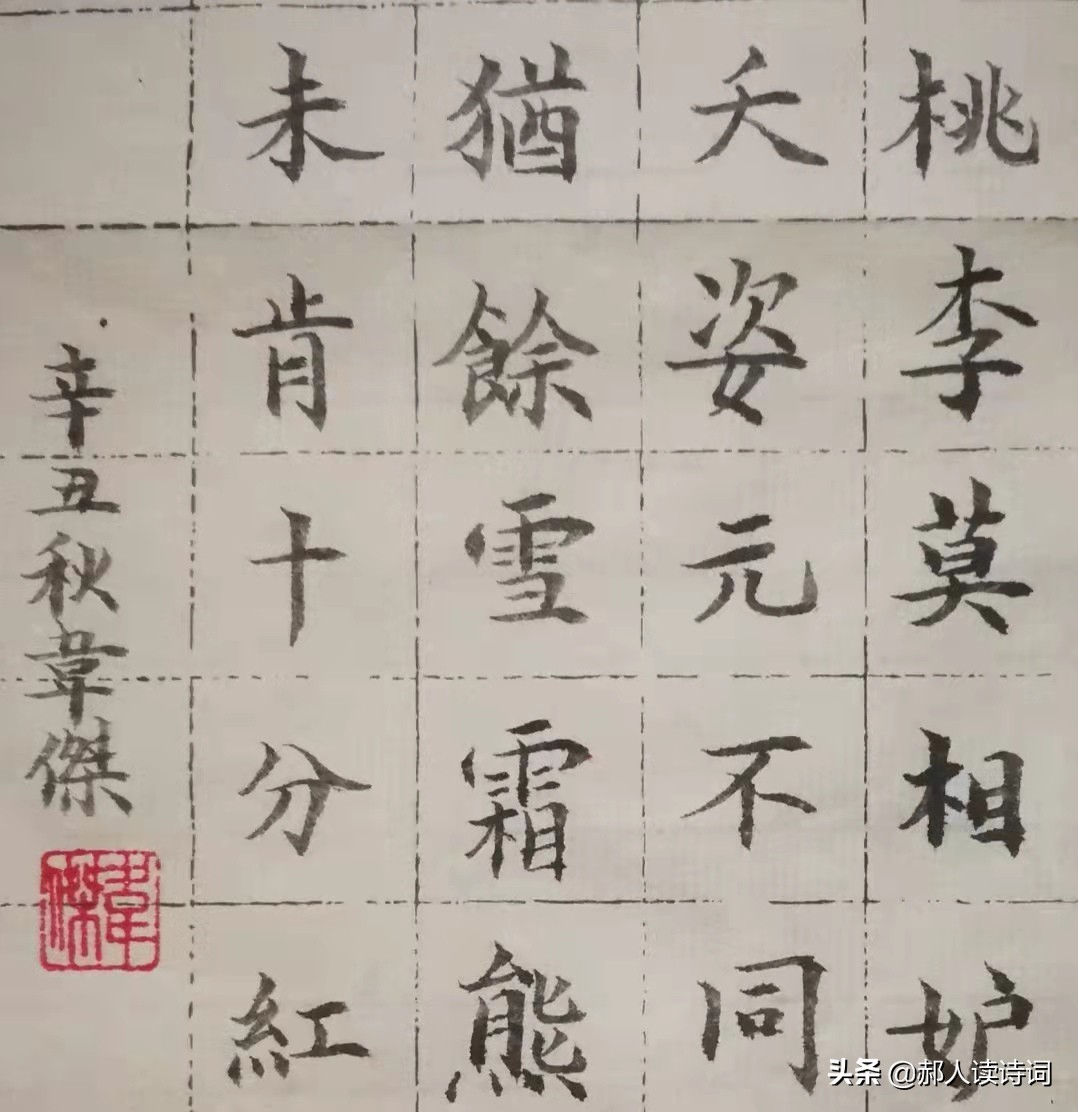 桃李莫相妒
夭姿元不同
猶餘雪霜熊
未肯十分紅
辛丑秋韋傑
韋傑
头条 @郝人读诗词